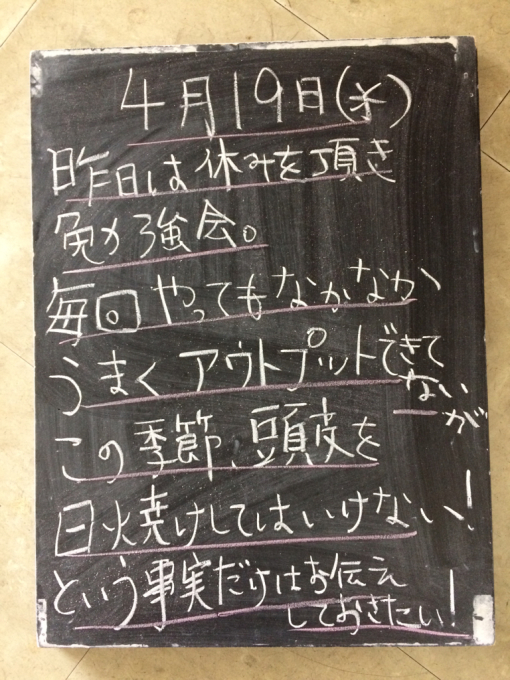 4月19日(水)
昨日は休みを頂き
勉強会。
毎回やってもなかなか
うまくアウトプットできて
ないが
この季節、頭皮を
日火焼けしてはいけない!
という事実だけはお伝え
しておきたい!